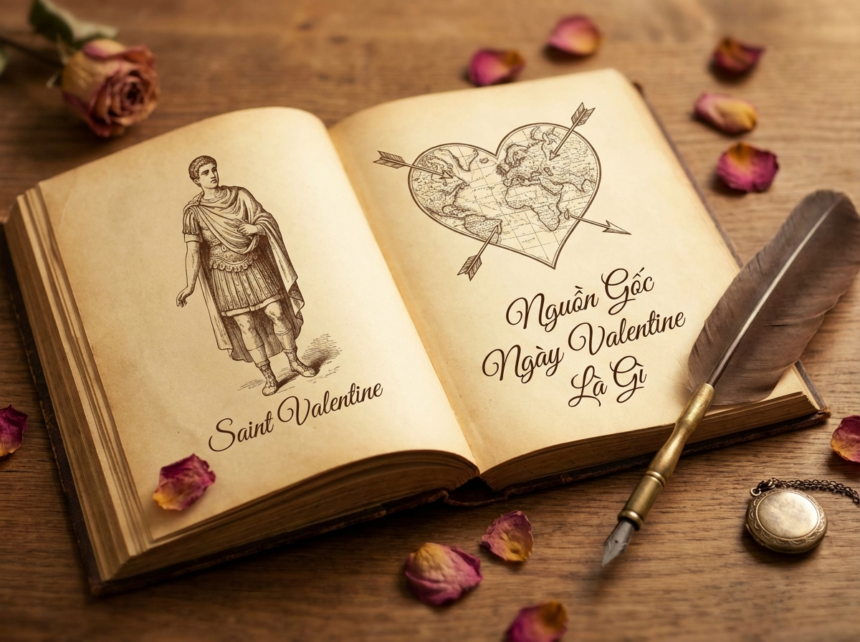 Saint Valentine
Nguồn Gốc
Ngày Valentine
Là Gì